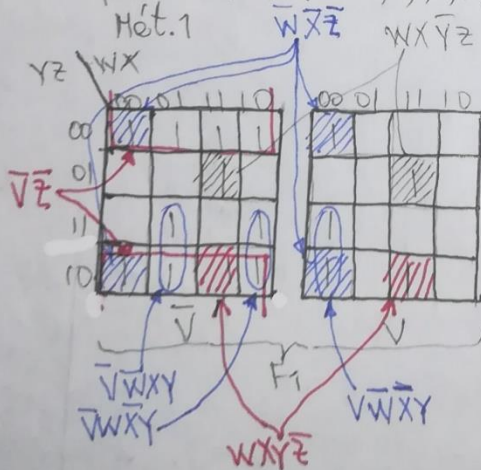 Mét.1
W̅X̅Z̅
WXY̅Z
YZ WX
00 01 11 10 00 01 11 10
00 1 1 1 1 1
01 1 1
V̅Z̅
11 1 1 1
10 1 1 1 1 1 1
V̅ V
F1
V̅W̅XY
V̅WX̅Y
VW̅X̅Y
WXYZ̅